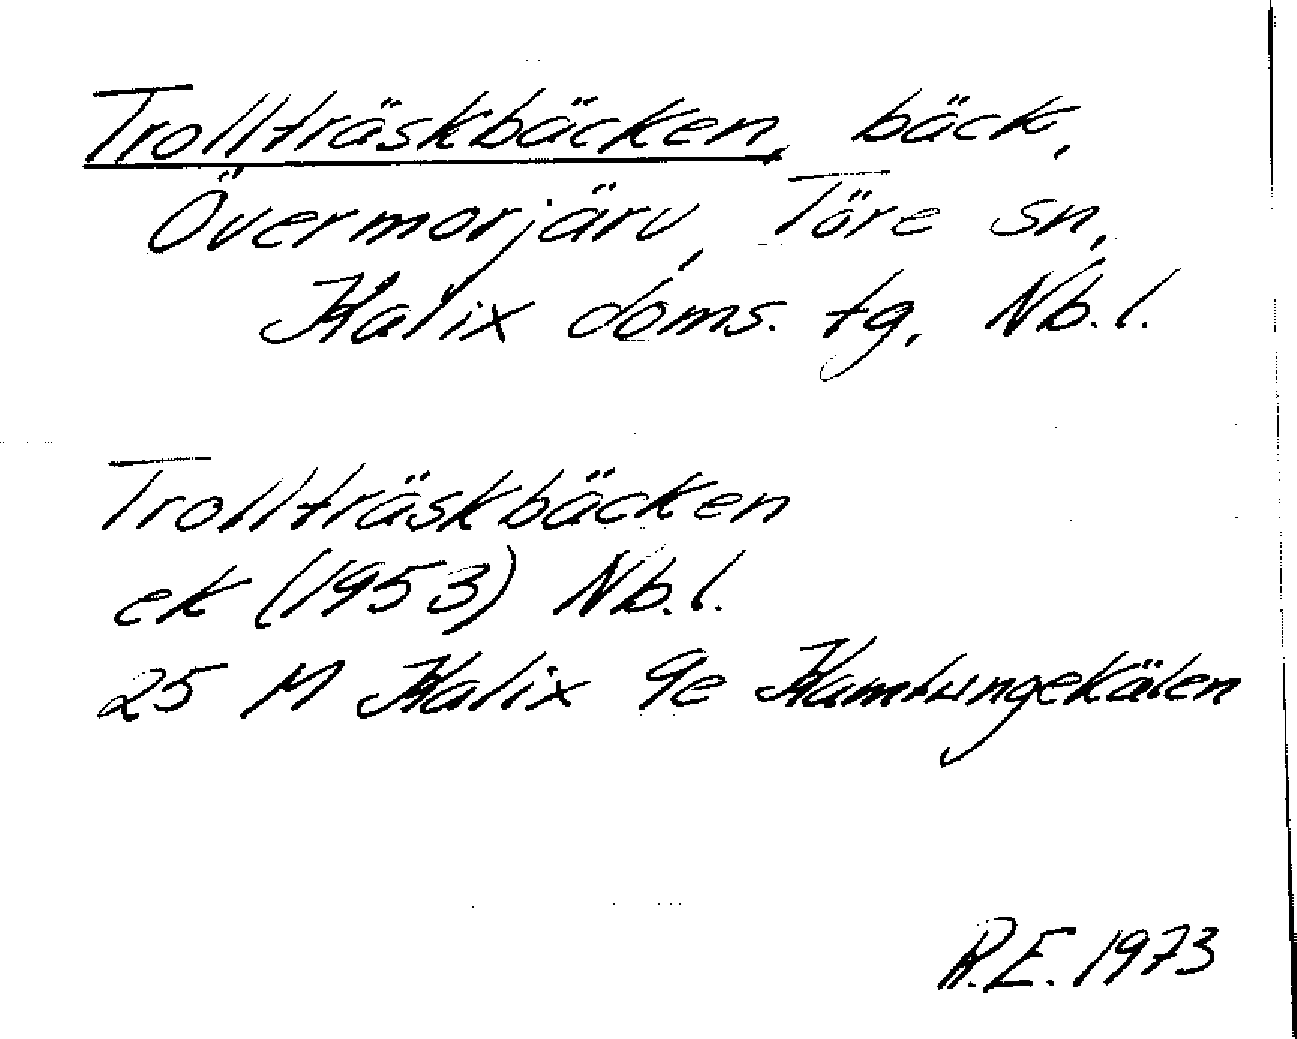 Trollträskbäcken, bäck,
Övermorjärv, Töre sn,
Kalix doms. tg, Nb.l.
Trollträskbäcken
ek (1953) Nb.l.
25 M Kalix 9e Kamlungekälen
R.E. 1973